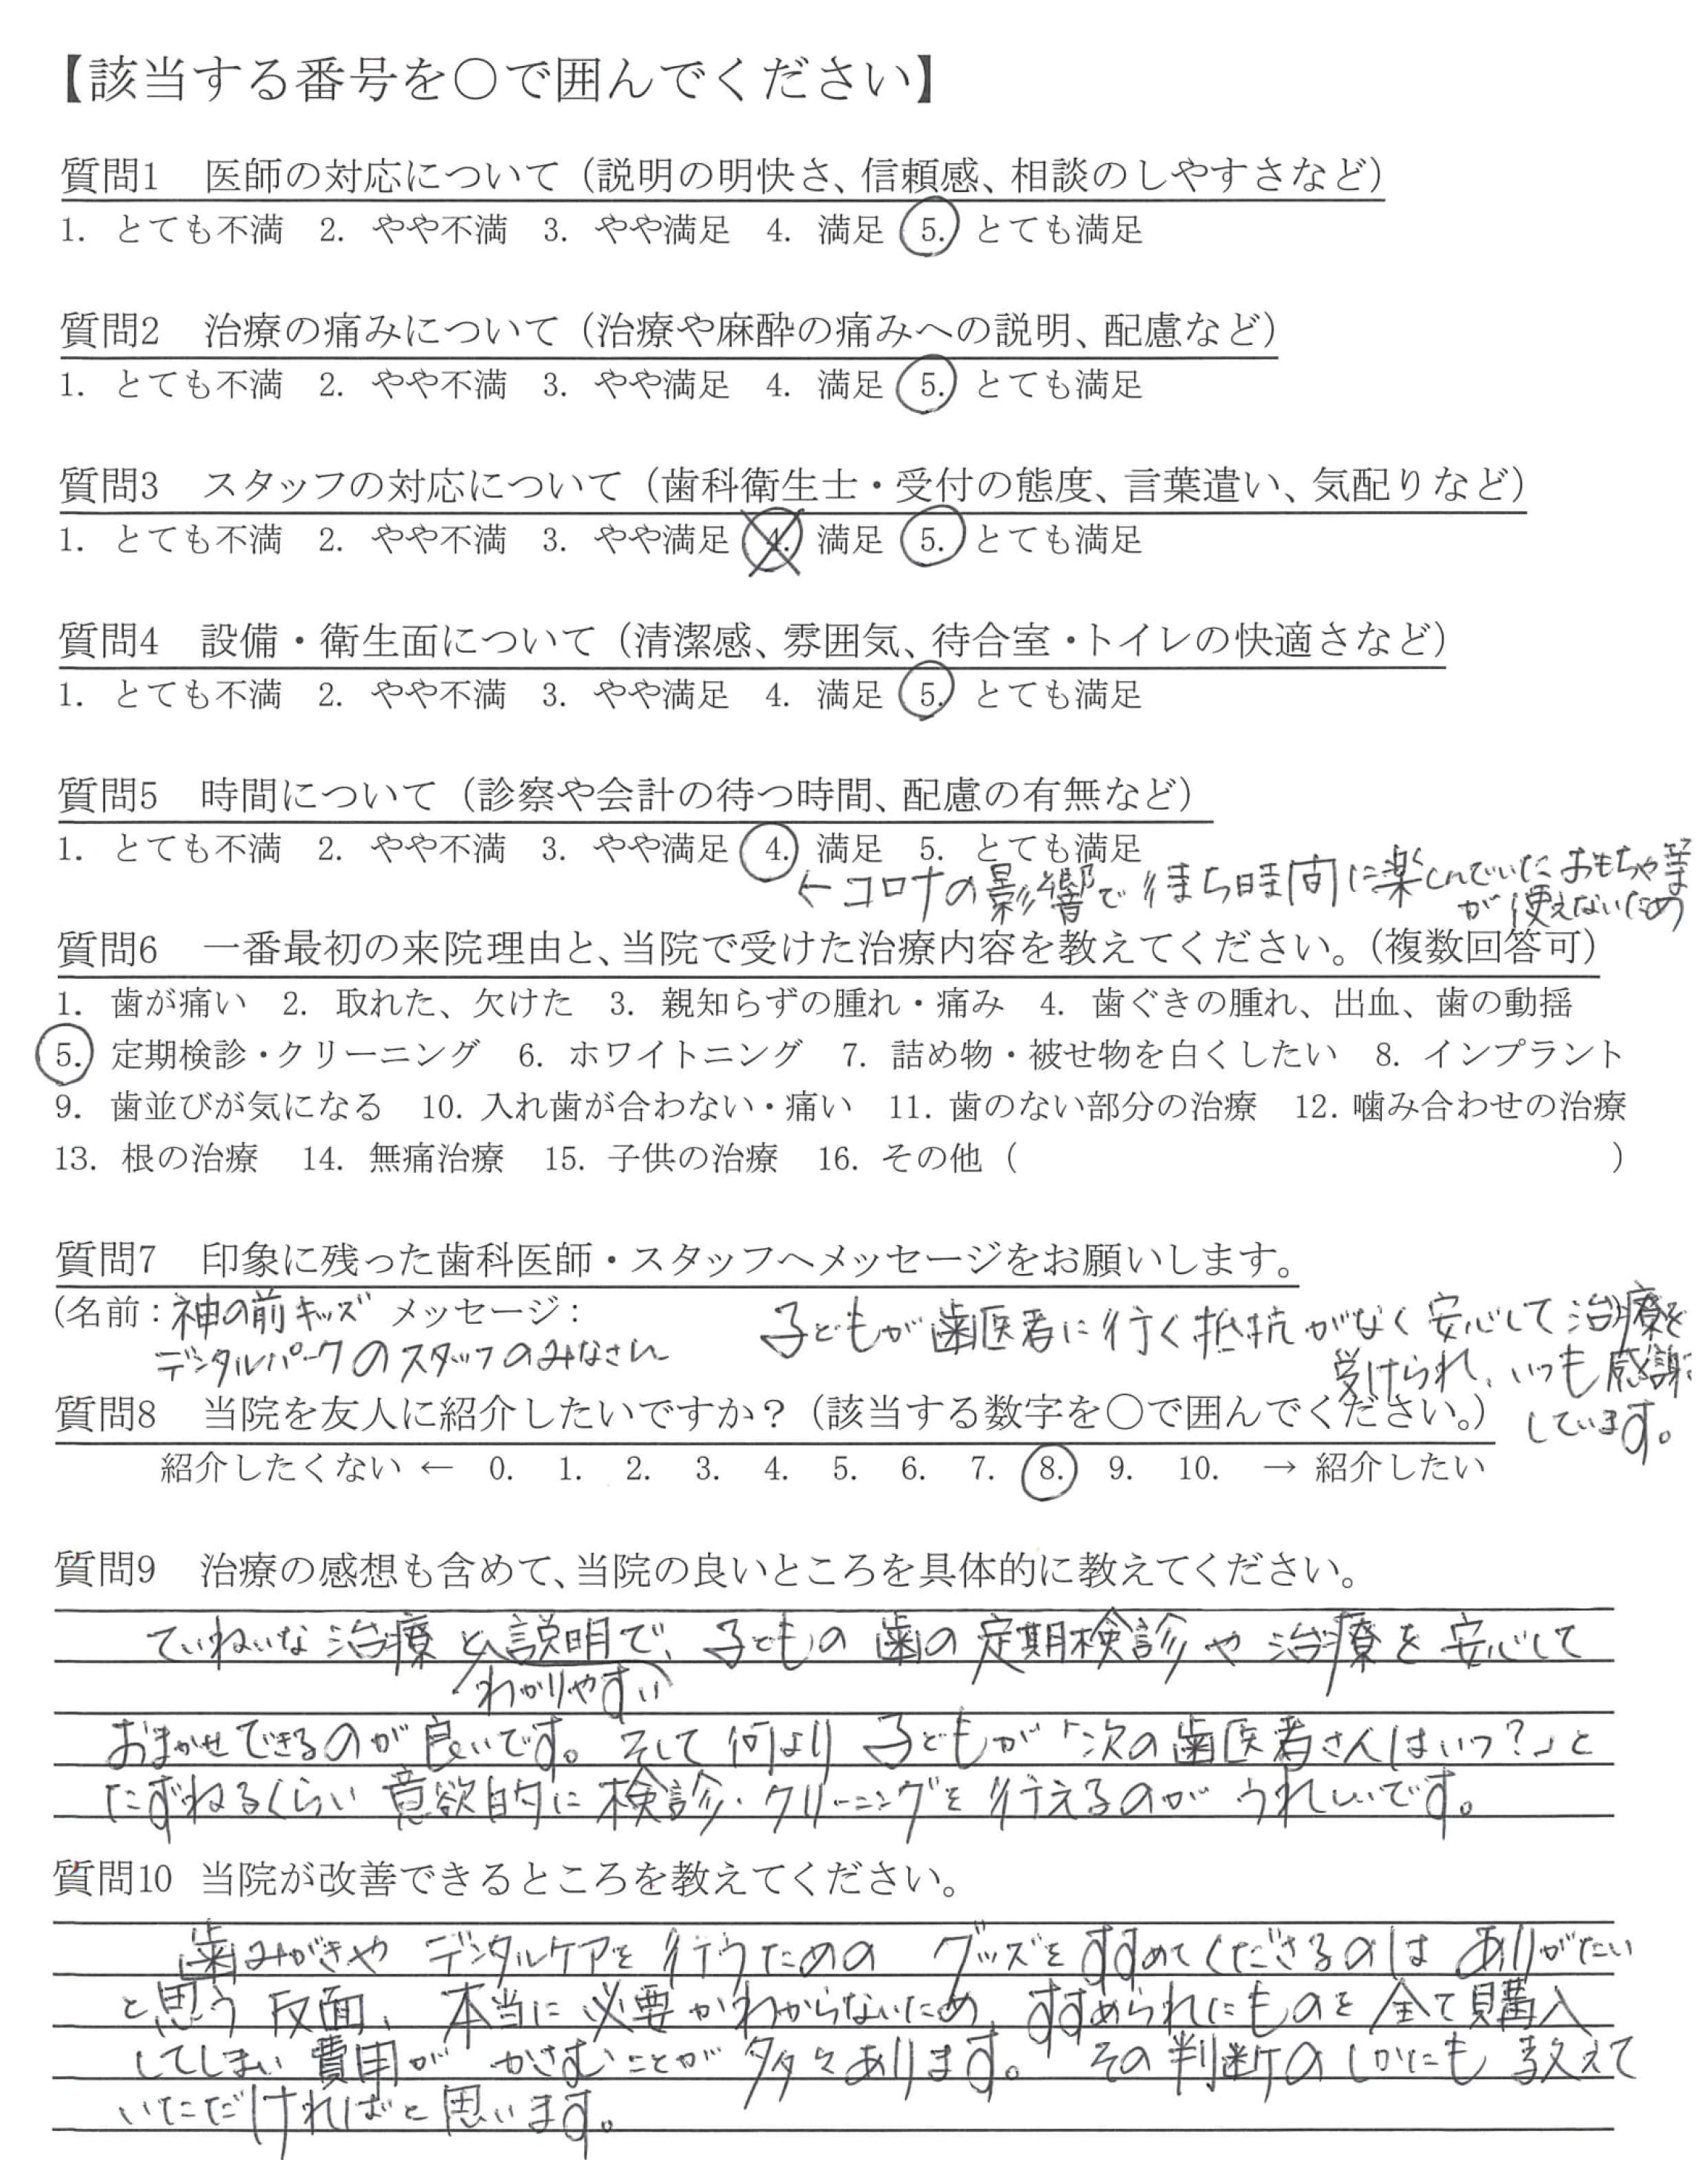 【該当する番号を○で囲んでください】
質問1　医師の対応について（説明の明快さ、信頼感、相談のしやすさなど）
1. とても不満　2. やや不満　3. やや満足　4. 満足　5. とても満足
質問2　治療の痛みについて（治療や麻酔の痛みへの説明、配慮など）
1. とても不満　2. やや不満　3. やや満足　4. 満足　5. とても満足
質問3　スタッフの対応について（歯科衛生士・受付の態度、言葉遣い、気配りなど）
1. とても不満　2. やや不満　3. やや満足　4. 満足　5. とても満足
質問4　設備・衛生面について（清潔感、雰囲気、待合室・トイレの快適さなど）
1. とても不満　2. やや不満　3. やや満足　4. 満足　5. とても満足
質問5　時間について（診察や会計の待つ時間、配慮の有無など）
1. とても不満　2. やや不満　3. やや満足　4. 満足　5. とても満足
←コロナの影響で待ち時間に楽しんでいたおもちゃ等
が使えないため
質問6　一番最初の来院理由と、当院で受けた治療内容を教えてください。（複数回答可）
1. 歯が痛い　2. 取れた、欠けた　3. 親知らずの腫れ・痛み　4. 歯ぐきの腫れ、出血、歯の動揺
5. 定期検診・クリーニング　6. ホワイトニング　7. 詰め物・被せ物を白くしたい　8. インプラント
9. 歯並びが気になる　10. 入れ歯が合わない・痛い　11. 歯のない部分の治療　12. 噛み合わせの治療
13. 根の治療　14. 無痛治療　15. 子供の治療　16. その他（　　　）
質問7　印象に残った歯科医師・スタッフへメッセージをお願いします。
（名前：神の前キッズ　メッセージ：
デンタルパークのスタッフのみなさん
子どもが歯医者に行く抵抗がなく安心して治療を
受けられ、いつも感謝
しています。
質問8　当院を友人に紹介したいですか？（該当する数字を○で囲んでください。）
紹介したくない ← 0. 1. 2. 3. 4. 5. 6. 7. 8. 9. 10. → 紹介したい
質問9　治療の感想も含めて、当院の良いところを具体的に教えてください。
ていねいな治療と説明で、子どもの歯の定期検診や治療を安心して
わかりやすい
おまかせできるのが良いです。そして何より子どもが「次の歯医者さんはいつ？」と
たずねるくらい意欲的に検診・クリーニングを行えるのがうれしいです。
質問10 当院が改善できるところを教えてください。
歯みがきやデンタルケアを行うためのグッズをすすめてくださるのはありがたい
と思う反面、本当に必要かわからないため、すすめられたものを全て購入
してしまい費用がかさむことが多々あります。その判断のしかたも教えて
いただければと思います。